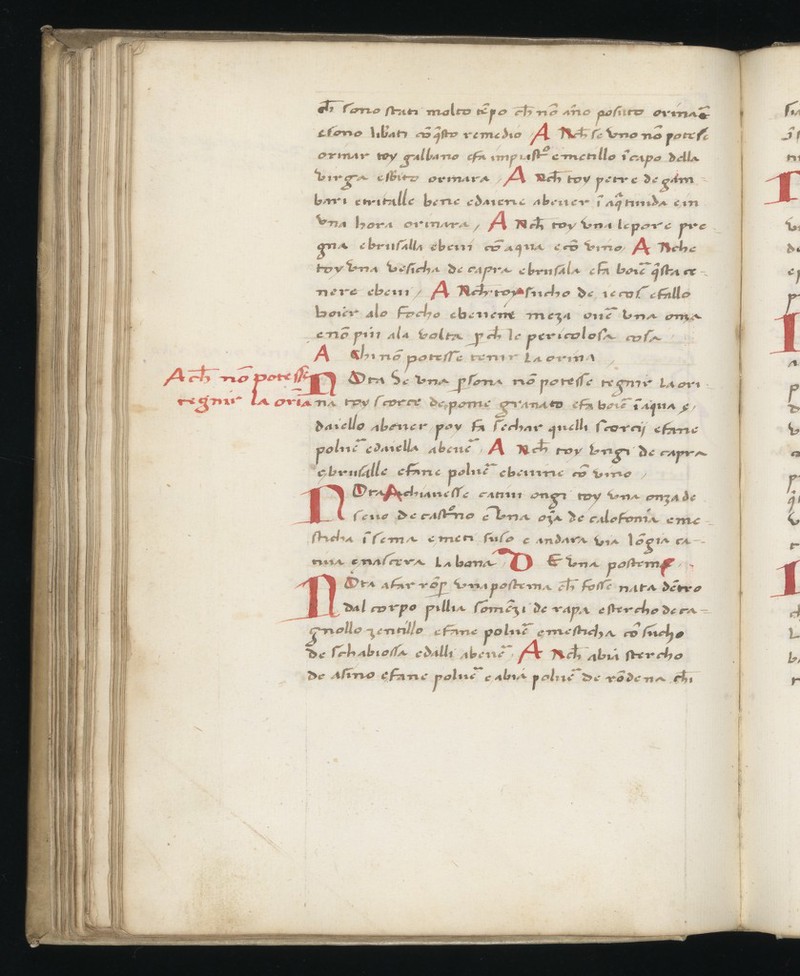 ch̃ sono stati molto tẽpo ch̃ nõ ãno possuto orinar̃
e sono lib̃ati cõ q̃sto remedio A Nch̃ se vno nõ potese
orinar toy galbano e fa impiastr̃o e metillo ĩ capo della
virga e sb̃ito orinara / A nch̃ toy petre de gam̃
bari e tritalle bene e daiene abever ĩ aq̃ tinida e in
vna hora orinara / A Nch̃ toy vna lepore pre
gna e brusalla e bevi cõ aqua e cõ vino A Nche
toy vna vesicha de capra e brusala e fa boiẽ q̃sta ce
nere e bevi / A Nch̃ toy sucho de iecol e fallo
boier alo focho e bevene meza ouẽ vna onza
e nõ piu ala volta p̱ch̃ le pericolosa cosa
A Chi nõ potesse tenir la orina
Ach̃ nõ potesse
tegnir la orĩa
NOta se vna p̱sona nõ potesse tegnir la ori
na toy scorce de pome granato e fa boiẽ ĩ aqua e /
daiello abever poy fa sechar quelli scorcij e fane
poluẽ e daiella abevẽ A Nch̃ toy vngi de capra
e brusalle e fane poluẽ e beuine cõ vino /
NOta A chi avesse cativi ongi toy vna onza de
sevo de castr̃no e vna oz̃a de calofonĩa e me
sticha ĩsema e meti suso e andara via lõgia ca
tiva e nascera la bona D E vna postema
NOta afar rõp̱ vna postema ch̃ fosse nata dẽtro
dal corpo pillia somẽzi de rapa e stercho de ca
gnollo zentillo e fane poluẽ e mesticha cõ sucho
de schabiossa e dalli abevẽ A Nch̃ abia stercho
de asino e fane poluẽ e abia poluẽ de rõdena ch̃i